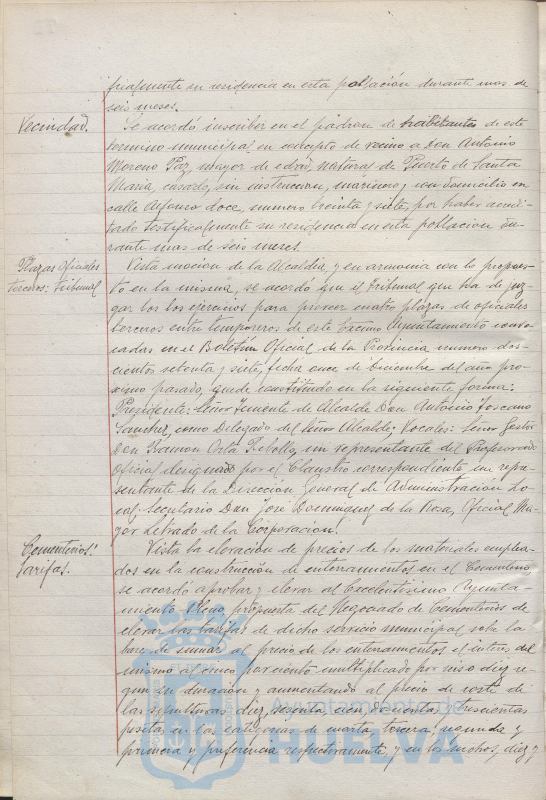 ficalmente su residencia en esta población durante mas de
seis meses.
Vecindad.
Se acordó inscribir en el padron de habitantes de este
termino municipal en concepto de vecino a Don Antonio
Moreno Paz, mayor de edad, natural de Puerto de Santa
Maria, casado, sin instruccion, marinero y con domicilio en
calle Alfonso doce, numero treinta y siete, por haber acredi-
tado testificalmente su residencia en esta poblacion du-
rante mas de seis meses.
Plazas oficiales
terceros: Tribunal
Vista mocion de la Alcaldia y en armonia con lo propues-
to en la misma, se acordo que el Tribunal que ha de juz-
gar los los ejercicios para proveer cuatro plazas de oficiales
terceros entre temporeros de este Excmo Ayuntamiento convo-
cadas en el Boletín Oficial de la Provincia numero dos-
cientos setenta y siete, fecha once de Diciembre del año pro-
ximo pasado, quede constituido en la siguiente forma:
Presidente: Señor Teniente de Alcalde Don Antonio Toscano
Sanchez, como Delegado del Señor Alcalde; Vocales: Señor Gestor
Don Ramon Orta Rebollo, un representante del Profesorado
Oficial designado por el Claustro correspondiente un repre-
sentante de la Dirección General de Administracion Lo-
cal; Secretario Don José Dominguez de la Rosa, Oficial Ma-
yor Letrado de la Corporacion.
Cementerios:
tarifas.
Vista la elevacion de precios de los materiales emplea-
dos en la construcción de enterramientos en el Cementerio,
se acordó aprobar y elevar al Excelentisimo Ayunta-
miento Pleno propuesta del Negociado de Cementerios de
elevar las tarifas de dicho servicio municipal sobre la
base de sumar al precio de los enterramientos el interés del
mismo al cinco por ciento multiplicado por uno o diez se-
gun su duración y aumentando al precio de coste de
las sepulturas diez, sesenta, cien doscientas y trescientas
pesetas en las categorias de cuarta, tercera, segunda y
primera y preferencia respectivamente y en los nichos, diez y
Ayuntamiento de
HUELVA